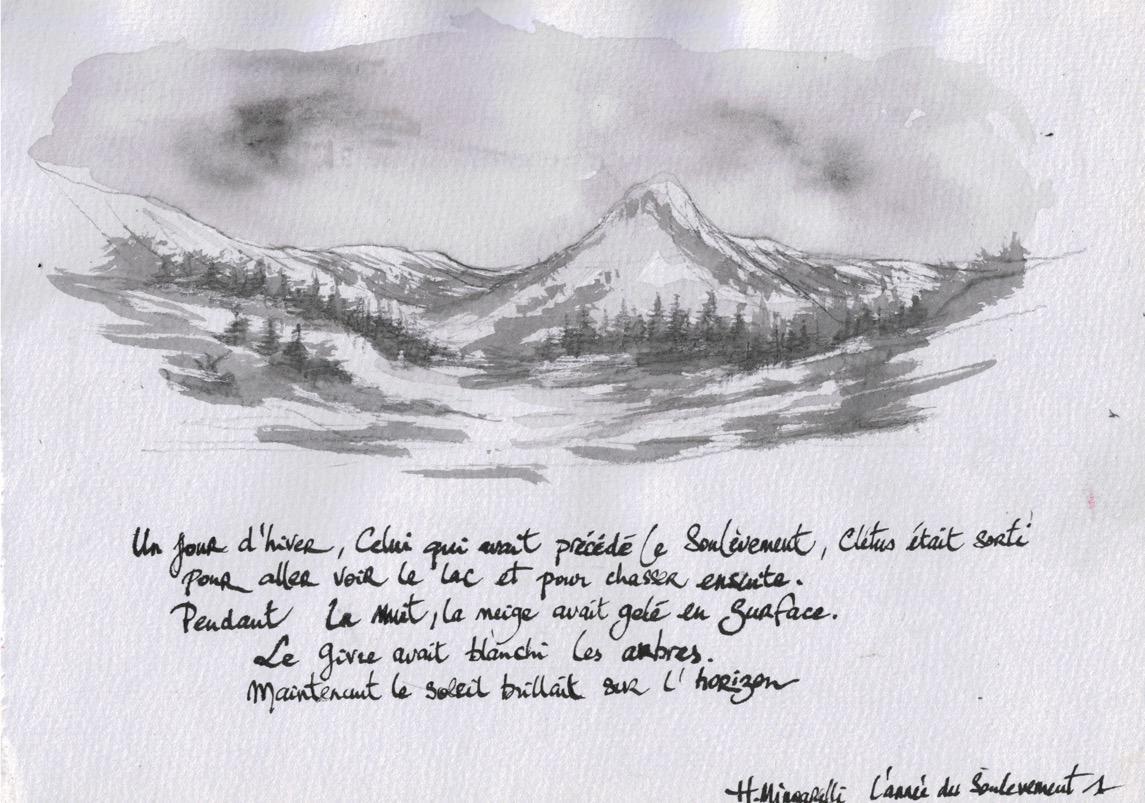 Un jour d'hiver, Celui qui avait précédé le Soulèvement, Clétus était sorti
pour aller voir le lac et pour chasser ensuite.
Pendant la nuit, la neige avait gelé en surface.
Le givre avait blanchi les arbres.
Maintenant le soleil brillait sur l'horizon
H. Mingarelli L'année du Soulèvement 1